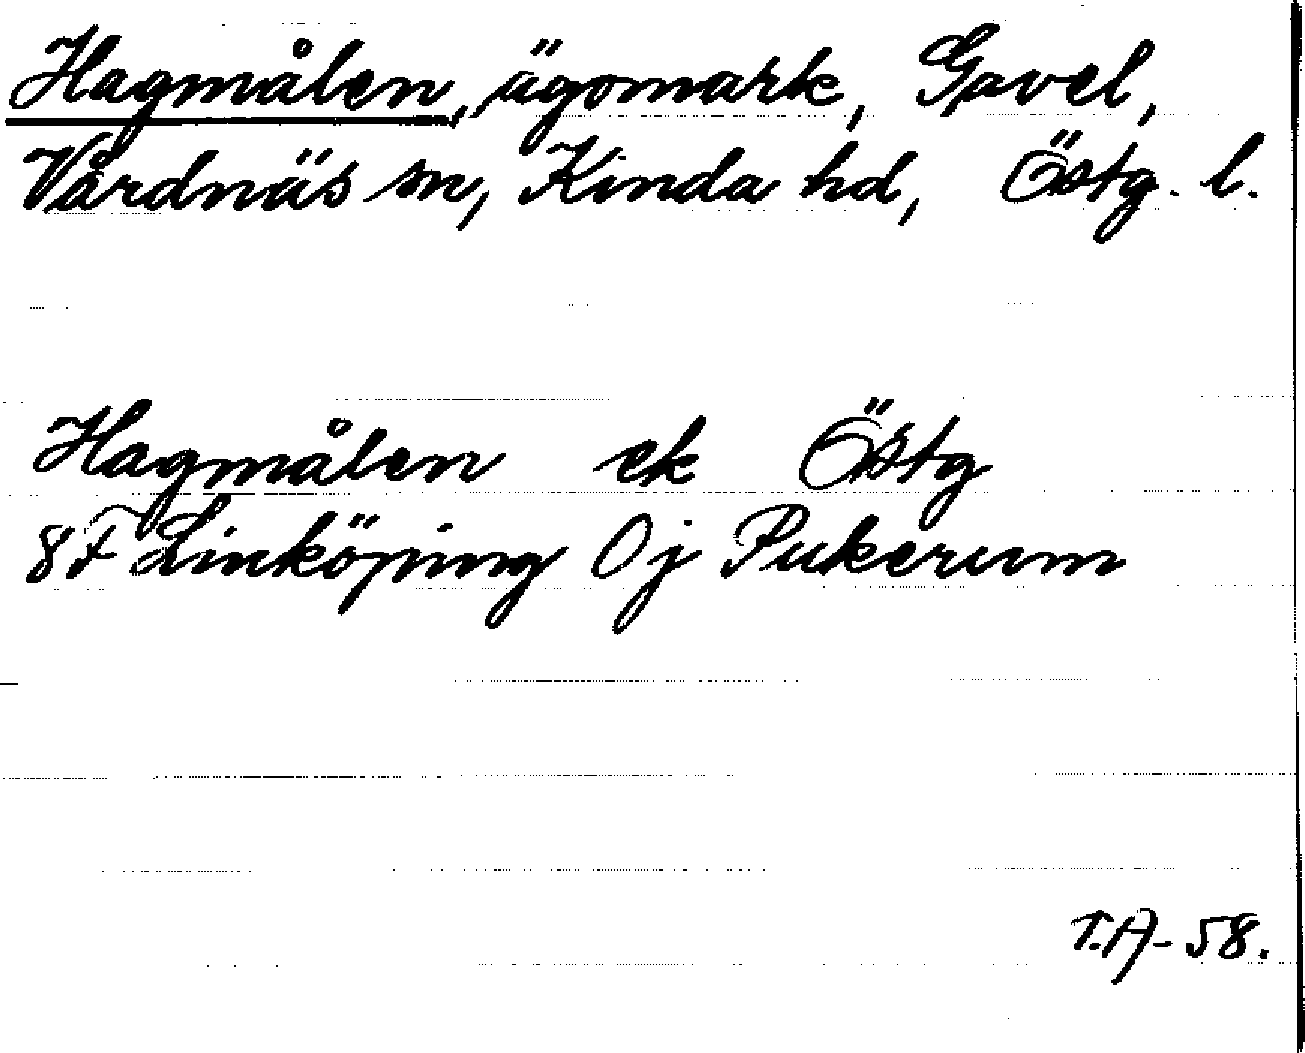 Hagmålen, ägomark, Gavel,
Vårdnäs sn, Kinda hd, Östg. l.
Hagmålen ek Östg
8F Linköping 0j Pukerum
T.A-58.